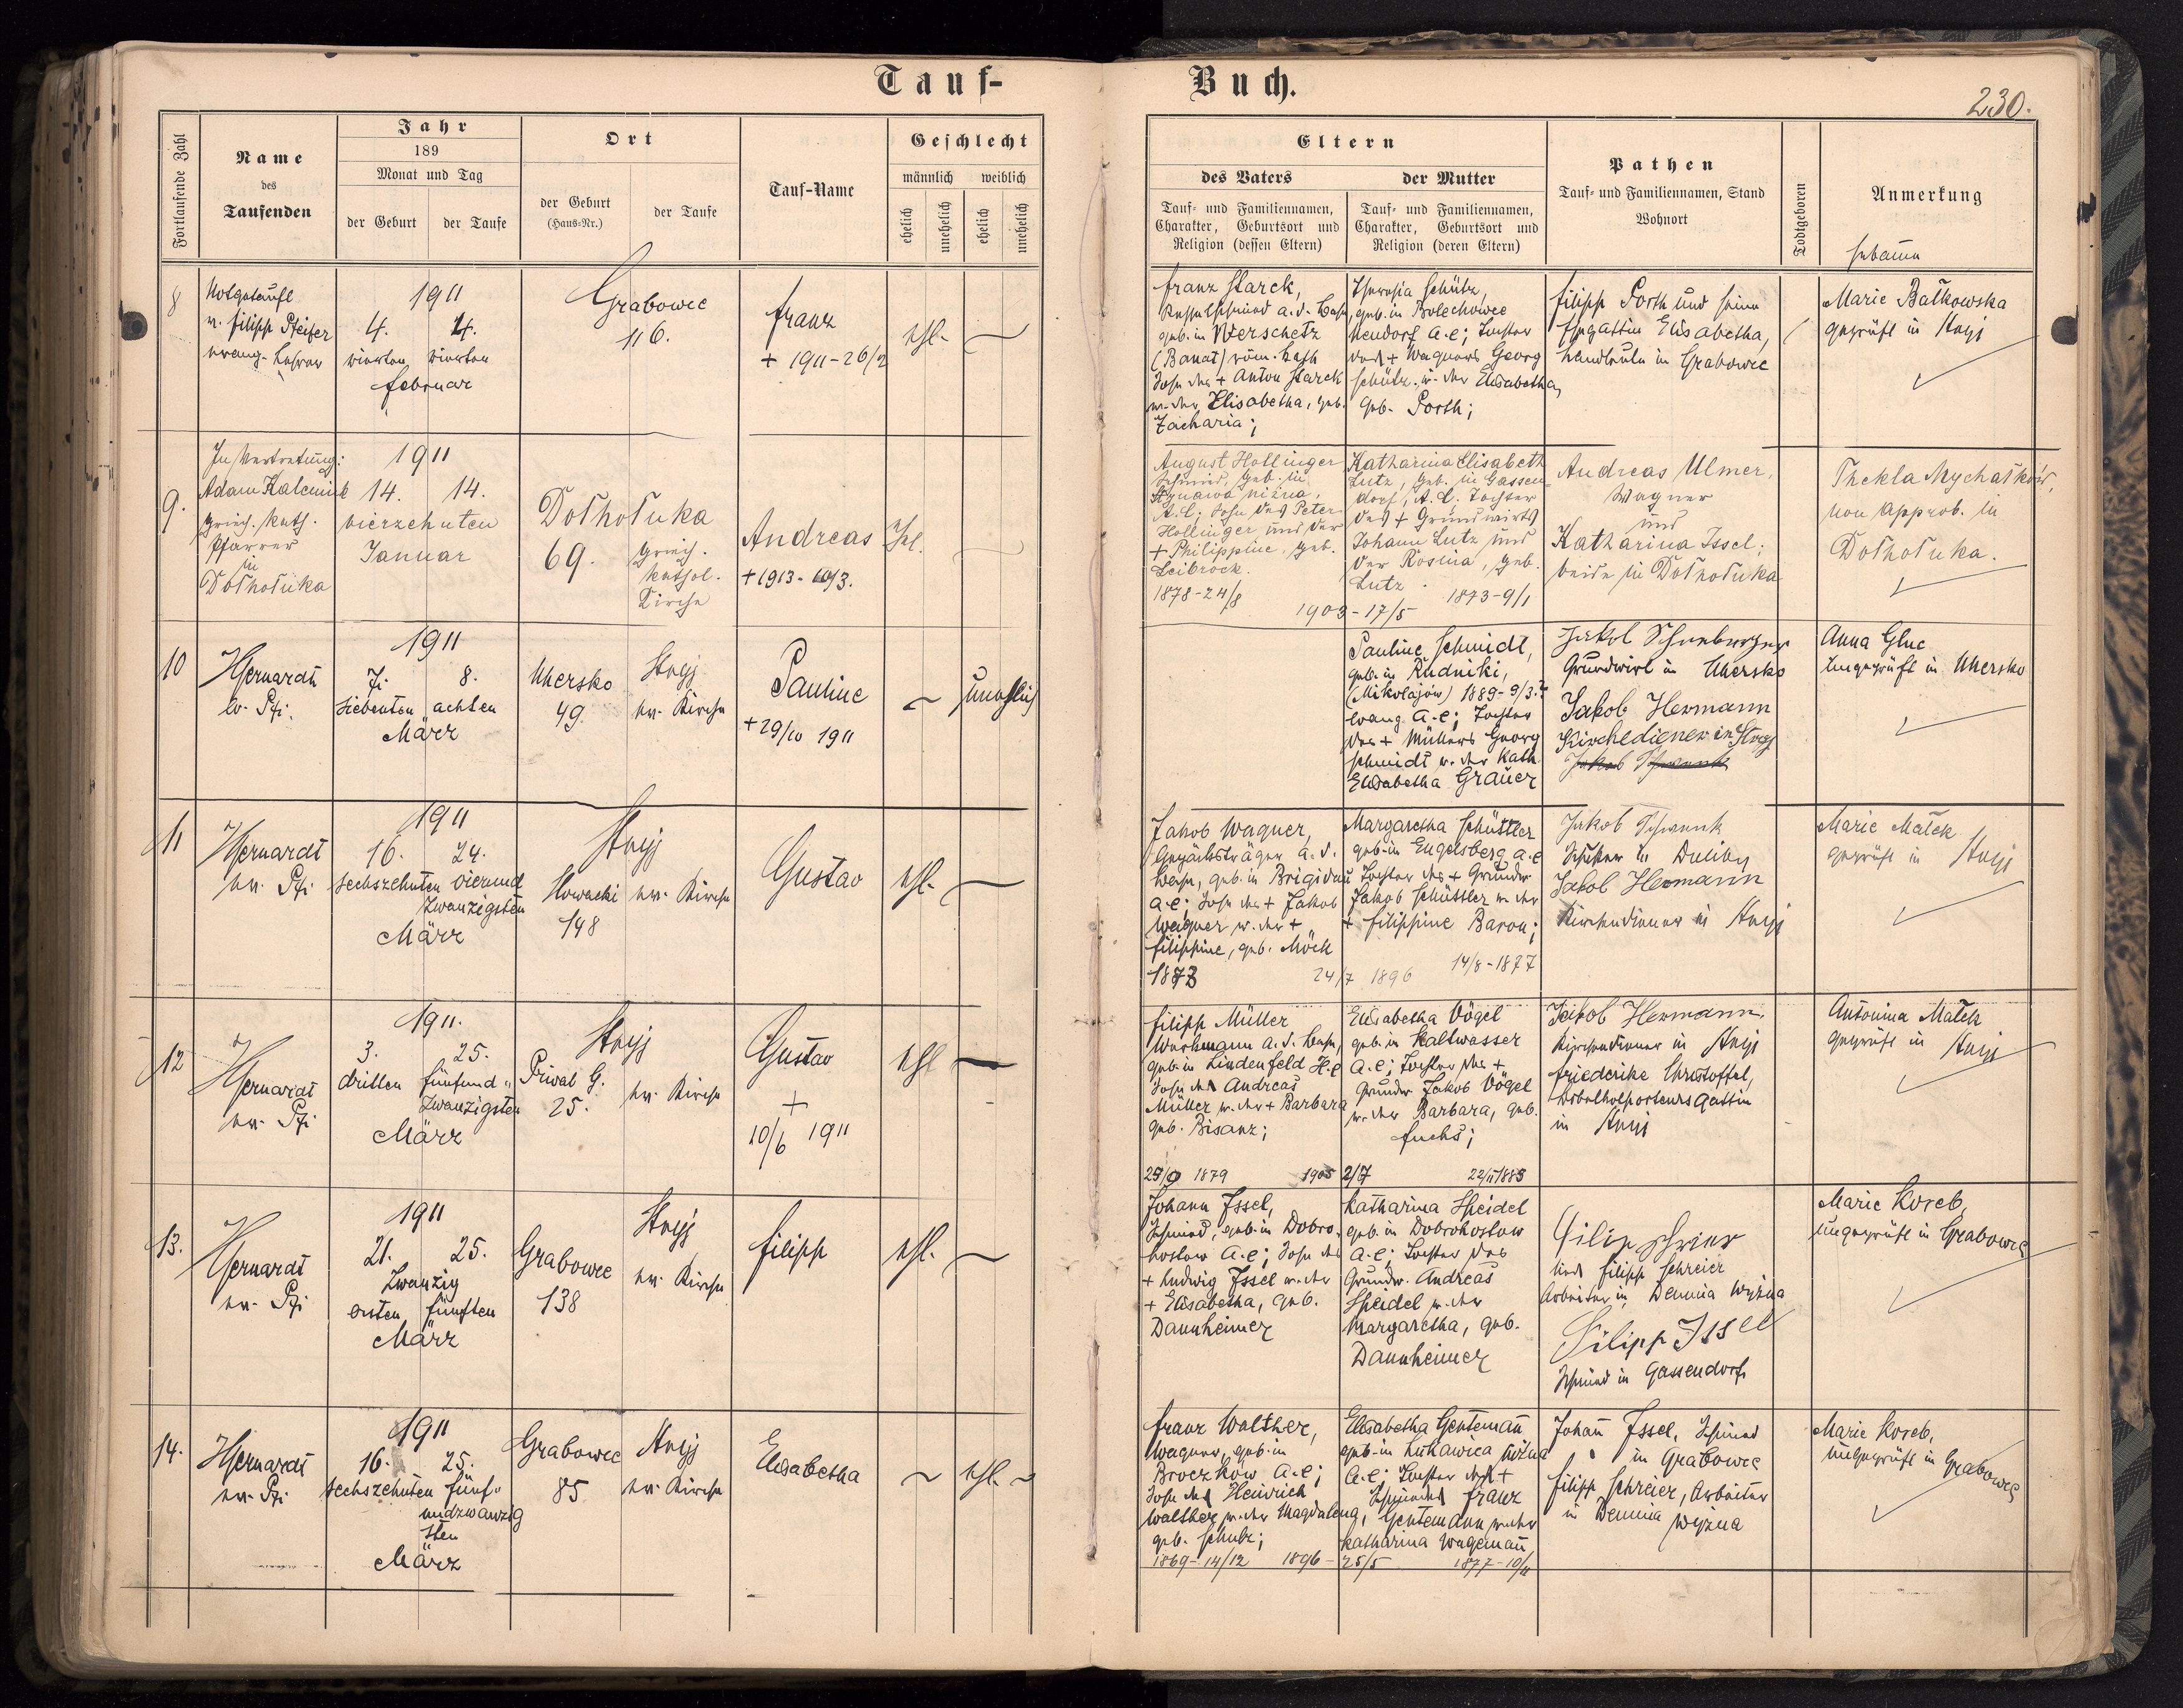 Tauf-
Buch.
230.
Fortlaufende Zahl
Name
des
Taufenden
Jahr
189
Monat und Tag
der Geburt
der Taufe
Ort
der Geburt
(Haus-Nr.)
der Taufe
Tauf-Name
Geschlecht
männlich
weiblich
ehelich
unehelich
ehelich
unehelich
Eltern
des Vaters
der Mutter
Tauf- und Familiennamen,
Charakter, Geburtsort und
Religion (dessen Eltern)
Tauf- und Familiennamen,
Charakter, Geburtsort und
Religion (deren Eltern)
Pathen
Tauf- und Familiennamen, Stand
Wohnort
Todtgeboren
Anmerkung
Hebamme
8
Notgetauft
v. Filipp Pfeifer
evang. Lehrer
1911
4. 4.
vierten vierten
Februar
Grabowce
116.
Franz
+ 1911-26/2
ehl.
Franz Starck,
Kesselschmied a. d. Bahn
geb. in Werschetz
(Banat) röm. kath
Sohn des + Anton Starck
u. der Elisabetha, geb.
Zacharia;
Theresia Schütz,
geb. in Bolechowce
Neudorf a. C; Tochter
des + Wagners Georg
Schütz u. der Elisabetha,
geb. Porth;
Filipp Porth und seine
Ehegattin Elisabetha,
Landleute in Grabowce
Marie Bałkowska
geprüft in Stryj
9.
In Vertretung:
Adam Kalciniuk
griech. kath.
Pfarrer
in
Dołhołuka
1911
14. 14.
vierzehnten
Januar
Dołhołuka
69.
griech.
kathol.
Kirche
Andreas
+1913-10/3.
Ehl.
August Hollinger
Schmied, geb. in
Synawa niżna,
A.C. Sohn des Peter
Hollinger und der
+ Philippine, geb.
Leibrock.
1878-24/8
1903-17/5
Katharina Elisabeth
Lutz, geb. in Gassen-
dorf, A.C. Tochter
des + Grundwirts
Johann Lutz und
der Rosina, geb.
Lutz.
1873-9/1
Andreas Ulmer,
Wagner
und
Katharina Issel;
beide in Dołhołuka
Thekla Mychałków,
non approb. in
Dołhołuka.
10
Hernardt
ev. Pfr.
1911
7. 8.
siebenten achten
März
Uhersko
49.
Stryj
ev. Kirche
Pauline
+29/10 1911
unehlich
Pauline Schmidt,
geb. in Rudniki,
(Mikołajów) 1889-9/3
evang. A.C; Tochter
des + Müllers Georg
Schmidt u. der Kath
Elisabetha Grauer
Grundwirt in Uhersko
Jakob Hermann
Kirchediener in Stryj
Anna Gluc
ungeprüft in Uhersko
11
Hernardt
ev. Pfr
1911
16. 24.
sechszehnten vierund
zwanzigsten
März
Stryj
Słowacki
148
ev. Kirche
Gustav
ehl.
Jakob Wagner,
Gepäcksträger a. d.
Bahn, geb. in Brigidau
a. C; Sohn des + Jakob
Wagner u. der +
Filippine, geb. Möck
1873
24/7 1896
Margaretha Schüttler
geb. in Engelsberg a. C
Tochter des + Grundw.
Jakob Schüttler u. der
+ Filippine Baron;
14/8-1877
Jakob Schwenk
in Duliby
Jakob Hermann
Kirchendiener in Stryj
Marie Małek
geprüft in Stryj
12
Hernardt
ev. Pfr
1911.
3. 25.
dritten fünfund
zwanzigsten
März
Stryj
Privat G.
25.
ev. Kirche
Gustav
+
10/6 1911
ehl
Filipp Müller
Werkmann a. d. Bahn,
geb. in Lindenfeld H.C
Sohn des Andreas
Müller u. der + Barbara
geb. Bisanz;
1879
1905 2/7
Elisabetha Vögel
geb. in Kaltwasser
A. C; Tochter des +
Grundw. Jakob Vögel
u. der Barbara, geb.
Fuchs;
22/11 1885
Jakob Hermann,
Kirchendiener in Stryj
Friederike Christoffel,
gattin
in Stryj
Antonina Małek
geprüft in Stryj
13.
Hernardt
ev. Pfr
1911
21. 25.
Zwanzig
ersten fünften
März
Grabowce
138
Stryj
ev. Kirche
Filipp
ehl.
Johann Issel,
Schmied, geb. in Dobro-
hostow A. C; Sohn des
+ Ludwig Issel u. der
+ Elisabetha, geb.
Dannheimer
Katharina Heidel
geb. in Dobrohostow
A. C; Tochter des
Grundw. Andreas
Heidel u. der
Margaretha, geb.
Dannheimer
Filipp Schreier
Arbeiter in Dennia wyżna
Filipp Issel
Schmied in Gassendorf
Marie Koreb,
ungeprüft in Grabowce
14.
Hernardt
ev. Pfr
1911
16. 25.
sechszehnten fünf-
undzwanzig
sten
März
Grabowce
85
Stryj
ev. Kirche
Elisabetha
ehl.
Franz Walther,
Wagner, geb. in
Broczków A. C;
Sohn des Heinrich
Walther u. der Magdalena,
geb. Schulz;
1869-14/12
1896-25/5
Elisabetha Gentemann
geb. in Lukawica niżna
A. C; Tochter des +
Schmieds Franz
Gentemann u. der
Katharina Wagemann
1877-10/11
Johann Issel, Schmied
in Grabowce
Filipp Schreier, Arbeiter
in Dennia wyżna
Marie Koreb,
ungeprüft in Grabowce